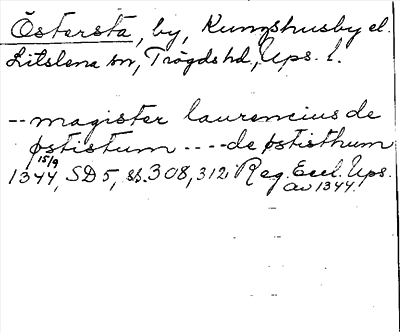 Östersta, by, Kungshusby el.
Litslena sn, Trögds hd, Ups. l.
-- magister laurencius de
østistum ---- de østisthum
15/9
1344, SD 5, ss. 308, 312 Reg. Eccl. Ups.
av 1344.